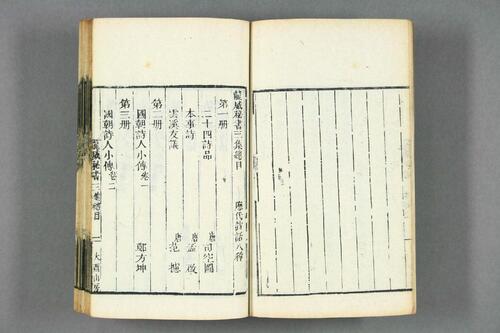 龍威秘書三集總目 歷代詩話八種
第一册
二十四詩品 唐 司空圖
本事詩 唐 孟棨
雲溪友議 唐 范攄
第二册
國朝詩人小傳卷一 鄭方坤
第三册
國朝詩人小傳卷二
龍威秘書三集總目 一 大酉山房